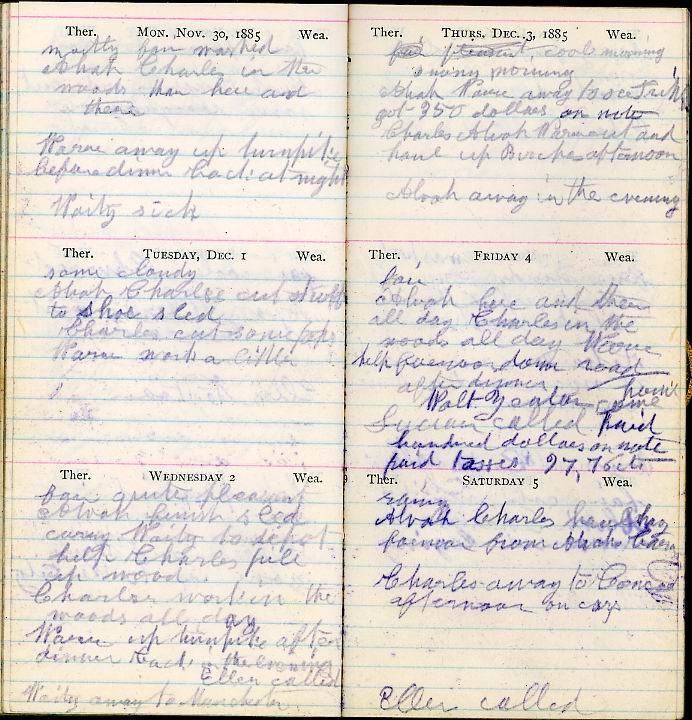 Ther. MON. NOV. 30, 1885 Wea.
mostly fair washed
Alvah Charles in the
woods than here and
there
Warne away up turnpike
before dinner back at night
Waity sick
Ther. TUESDAY, DEC. 1 Wea.
some cloudy
Alvah Charles cut stuff
to shoe sled
Charles cut some
Warne work a little
Ther. WEDNESDAY 2 Wea.
fair quite pleasant
Alvah sled
carry Waity to depot
help Charles pile
up wood
Charles work in the
woods all day
Warne up turnpike after
dinner back in the evening
Ellen called
Waity away to Manchester
Ther. THURS. DEC. 3, 1885 Wea.
fair pleasant, cool morning
morning
Alvah Warne away to
got 350 dollars on note
Charles Alvah Warne out and
haul up Birches afternoon
Alvah away in the evening
Ther. FRIDAY 4 Wea.
fair
Alvah here and there
all day Charles in the
woods all day Warne
help down road
after dinner
Walt come
called Paid
hundred dollars on note
paid taxes 97,76cts
Ther. SATURDAY 5 Wea.
rainy
Alvah Charles haul hay
from Alvah barn
Charles away to Concord
afternoon on cars
Ellen called